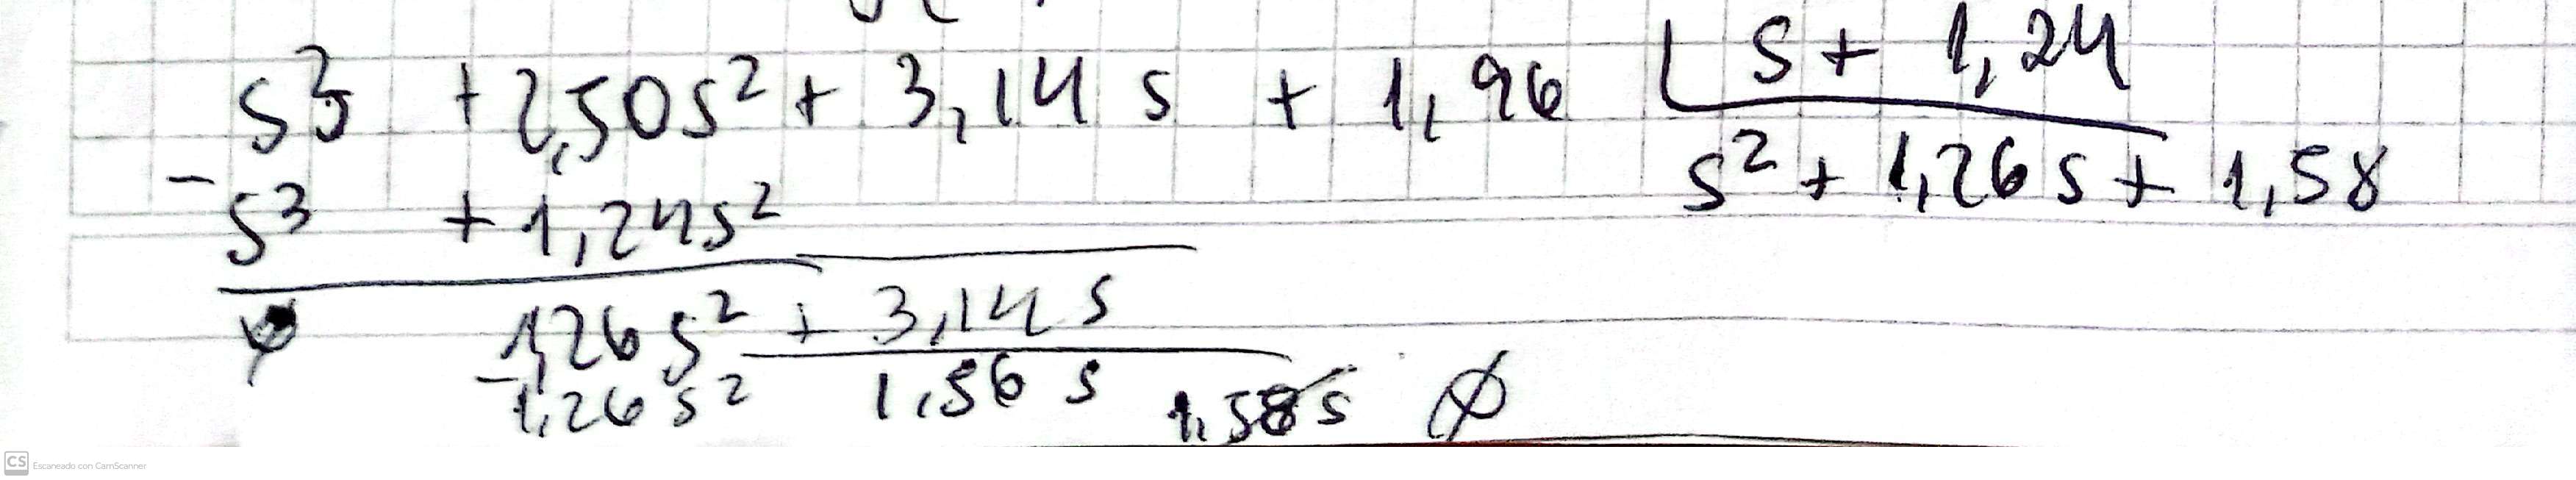 s³ + 2,50s² + 3,14 s + 1,96 | s + 1,24
- s³ + 1,24s² s² + 1,26 s + 1,58
∅ 1,26 s² + 3,14 s
- 1,26 s² 1,56 s 1,58 s ∅
CS Escaneado con CamScanner